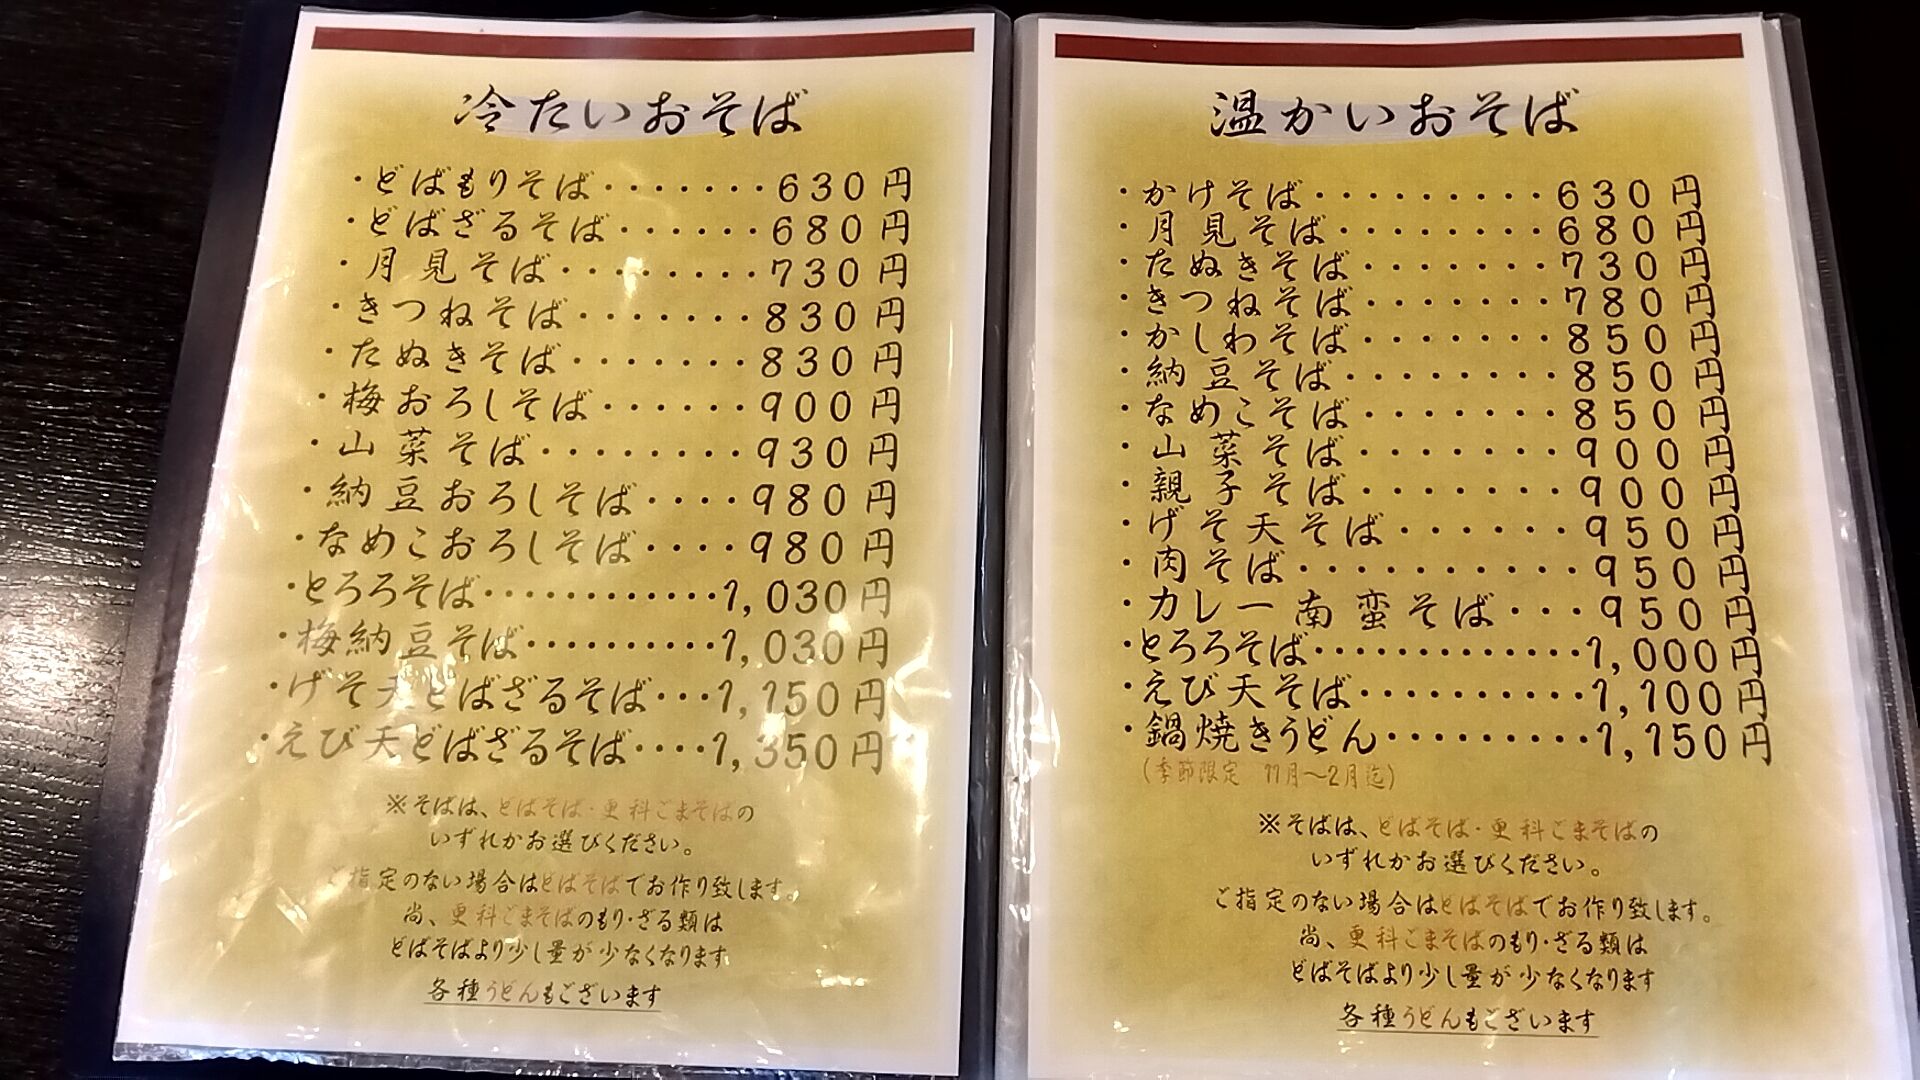 冷たいおそば
・どばもりそば・・・・・・・630円
・どばざるそば・・・・・・680円
・月見そば・・・・・・・・730円
・きつねそば・・・・・・・830円
・たぬきそば・・・・・・・830円
・梅おろしそば・・・・・・900円
・山菜そば・・・・・・・・930円
・納豆おろしそば・・・・980円
・なめこおろしそば・・・・980円
・とろろそば・・・・・・・・・・・・1,030円
・梅納豆そば・・・・・・・・・・1,030円
・げそ天どばざるそば・・・1,150円
・えび天どばざるそば・・・・1,350円
※そばは、どばそば・更科ごまそばの
いずれかお選びください。
ご指定のない場合はどばそばでお作り致します。
尚、更科ごまそばのもり・ざる類は
どばそばより少し量が少なくなります
各種うどんもございます
温かいおそば
・かけそば・・・・・・・・・630円
・月見そば・・・・・・・・680円
・たぬきそば・・・・・・・730円
・きつねそば・・・・・・・780円
・かしわそば・・・・・・・850円
・納豆そば・・・・・・・・850円
・なめこそば・・・・・・・850円
・山菜そば・・・・・・・・900円
・親子そば・・・・・・・・900円
・げそ天そば・・・・・・950円
・肉そば・・・・・・・・・・950円
・カレー南蛮そば・・・950円
・とろろそば・・・・・・・・・・・・・1,000円
・えび天そば・・・・・・・・・・1,100円
・鍋焼きうどん・・・・・・・・・1,150円
(季節限定 11月～2月迄)
※そばは、どばそば・更科ごまそばの
いずれかお選びください。
ご指定のない場合はどばそばでお作り致します。
尚、更科ごまそばのもり・ざる類は
どばそばより少し量が少なくなります
各種うどんもございます